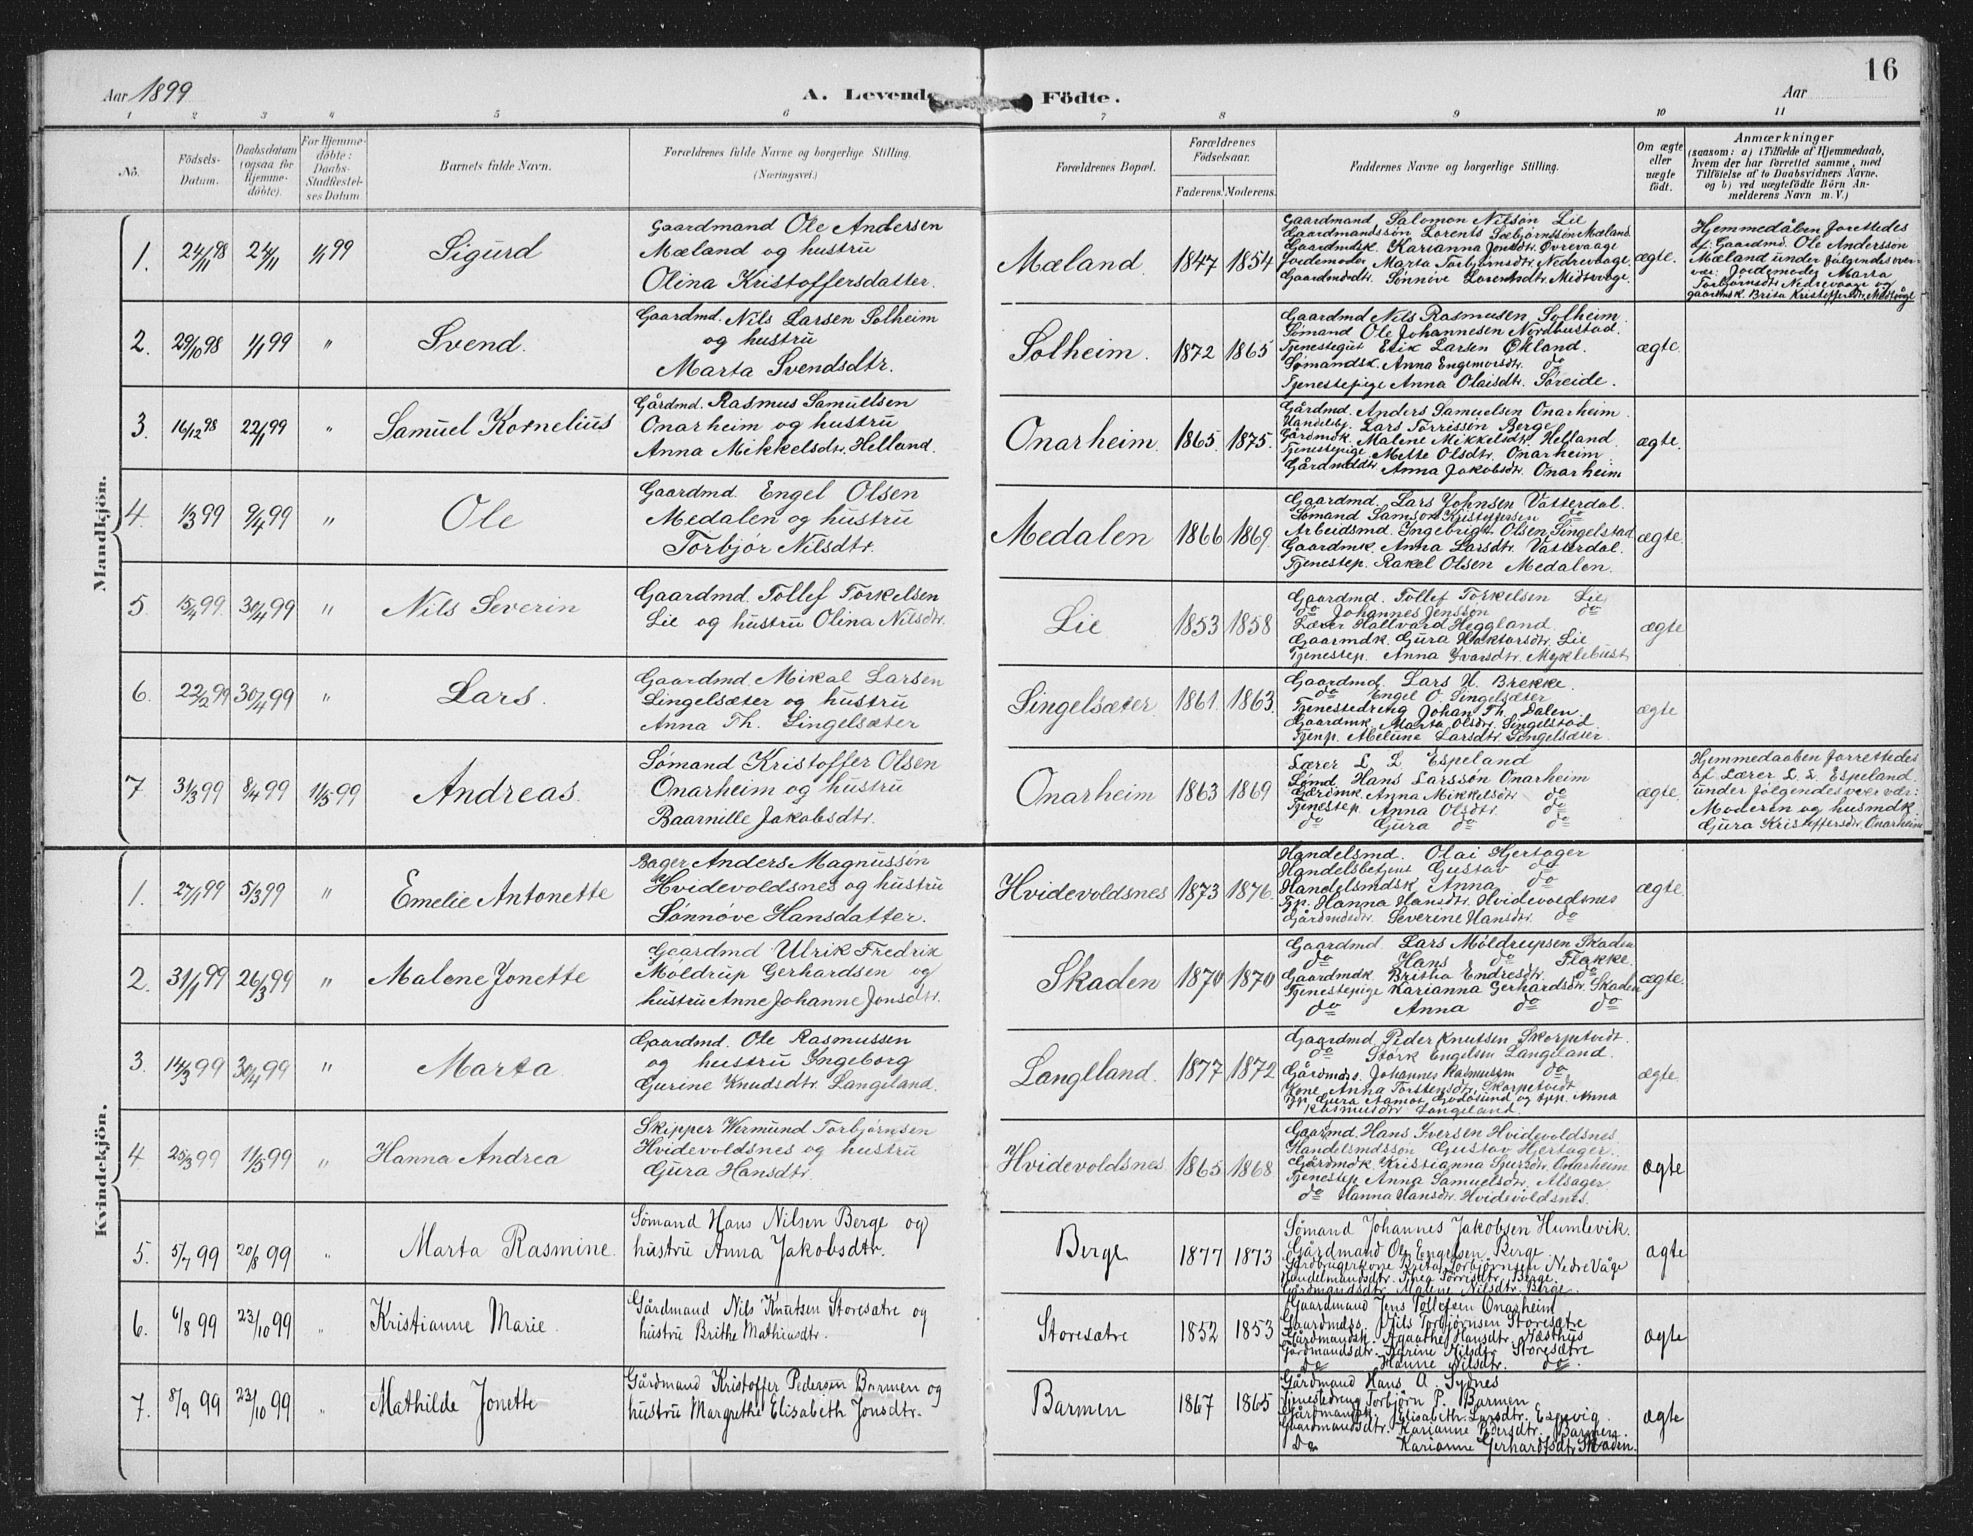 16
Aar 1899
A. Levende Födte.
Aar
1 2 3 4 5 6 7 8 9 10 11
No.
Födsels-Datum.
Daabsdatum (ogsaa for Hjemme-döbte).
For Hjemme-döbte: Daabs-Stadfæstel-ses Datum.
Barnets fulde Navn.
Forældrenes fulde Navne og borgerlige Stilling.
(Næringsvei.)
Forældrenes Bopæl.
Forældrenes Födselsaar.
Faderens. Moderens.
Faddernes Navne og borgerlige Stilling.
Om ægte eller uægte födt.
Anmærkninger
(saasom: a) i Tilfælde af Hjemmedaab,
hvem der har forrettet samme, med
Tilföielse af to Daabsvidners Navne,
og b) ved uægtefödte Börn An-
melderens Navn m. V.)
Mandkjön.
1. 24/11 98 24/11 1/1 99 Sigurd
Gaardmand Ole Andersen
Mæland og hustru
Olina Kristoffersdatter.
Mæland. 1847 1854
Gaardmand Salomon Nilson Lie
Gaardmandssön Lorents Sæbjörnssön Mæland
Gaardmdsk. Karianna Jonsdtr. Øvrevaage
Jordemoder Marta Torbjørnsdtr. Nedrevaage
Gaardmdsdtr. Sønnøve Larensdtr. Midtvaage.
ægte.
Hjemmedåben forettedes
af: Gaardmd. Ole Anderssön
Mæland under følgendes over-
vær: Jordemoder Marta
Torbjørnsdtr Nedrevaage og
gaardmsk. Brita Kristoffersdtr.
2. 29/10 98 1/1 99 " Svend.
Gaardmd. Nils Larsen Solheim
og hustru
Marta Svendsdtr.
Solheim. 1872 1865
Gaardmd Nils Rasmusen Solheim
Sømand Ole Johannesen Nordhustad.
Tjenestegut Erik Larsen Økland.
Sømandsk. Anna Engemorsdtr. do
Tjenestepige Anna Olaisdtr. Søreide.
ægte.
3. 16/12 98 22/1 99 " Samuel Kornelius
Gårdmd. Rasmus Samuelsen
Onarheim og hustru
Anna Mikkelsdtr. Helland.
Onarheim. 1865. 1875.
Gårdmd. Anders Samuelsen Onarheim.
Handelsb. Lars Torrissön Berge
Gårdmdk. Malene Mikkelsdtr. Helland.
Tjenestepige Mette Olsdtr. Onarheim
Gårdmdsdtr Anna Jakobsdtr. Onarheim
ægte.
4. 1/3 99 9/4 99 " Ole
Gaardmd. Engel Olsen
Medalen og hustru
Torbjør Nilsdtr.
Medalen 1866 1869.
Gaardmd. Lars Johnsen Vatterdal.
Sømand Samson Kristoffersen do
Arbeidsmd. Ingebrigt Olsen Singelstad
Gaardmk. Anna Larsdtr. Vatterdal.
Tjenestep. Rakel Olsen Medalen.
ægte.
5. 15/4 99. 30/4 99 " Nils Severin
Gaardmd. Tollef Torkelsen
Lie og hustru Olina Nilsdtr.
Lie 1853 1858
Gaardmd. Tollef Torkelsen Lie
do Johannes Jenssön do
Lærer Hallvard Heggland.
Gaarmdk. Gura Haktorsdtr. Lie
Tjenestep. Anna Ivarsdtr. Myklebust
ægte
6. 22/2 99 30/4 99 " Lars.
Gaardmd Mikal Larsen
Singelsæter og hustru
Anna Th. Singelsæter
Singelsæter. 1861. 1863.
Gaardmd. Lars H. Brekke.
do Engel O. Singelsæter
Tjenestedreng Johan Th. Dalen.
Gaardmk. Marta Olsdtr. Singelstad.
Tjenp. Abelune Larsdtr. Singelsæter.
ægte
7 31/3 99 8/4 99 11/5 99 Andreas.
Sømand Kristoffer Olsen
Onarheim og hustru
Baarnille Jakobsdtr.
Onarheim 1863 1869
Lærer L L Espeland
Sømd. Hans Larssön Onarheim
Gærdmk. Anna Mikkelsdtr do
Tjenestep. Anna Olsdtr. do
do Gura do do
ægte.
Hjemmedaaben forrettedes
af Lærer L. L. Espeland.
under følgendes overvær:
Moderen og husmdk
Gjura Kristoffersdtr. Onarheim
Kvindekjön.
1. 27/1 99 5/3 99 " Emelie Antonette
Bager Anders Magnussön
Hvidevoldsnes og hustru
Sønnøve Hansdatter.
Hvidevoldsnes 1873 1876.
Handelsmd. Olai Hjertager
Handelsbetjent Gustav do
Handelsmdsk Anna do
Tjp. Hanna Hansdtr. Hvidevoldsnes
Gårdmdsdtr. Severine Hansdtr. do
ægte.
2. 31/1 99 26/3 99 " Malene Jonette
Gaardmd Ulrik Fredrik
Møldrup Gerhardsen og
hustru Anne Johanne Jonsdtr.
Skaden 1870 1870
Gaardmd Lars Møldrupsen Skaden
do Hans do Flakke.
Gaardmdk Britha Endresdtr. do
Tjenestepige Karianna Gerhardsdtr. Skaden
do Anna do do
ægte.
3. 14/3 99 30/4 99 " Marta.
Gaardmd. Ole Rasmussen
og hustru Ingeborg
Gurine Knudsdtr. Langeland.
Langeland. 1877 1872
Gaardmd. Peder Knutsen Skorpetvedt.
do Størk Engelsen Langeland.
Gårdmds. Johannes Rasmussen do
Kone Anna Torstensdtr. Skorpetvedt
Tjp. Gura Aamot, Godøsund og tjp. Anna
Rasmusdtr Langeland.
ægte
4 25/3 99 11/5 99 " Hanna Andrea
Skipper Wermund Torbjørnsen
Hvidevoldsnes og hustru
Gjura Hansdtr.
Hvidevoldsnes 1865 1868.
Gaarmd. Hans Iversen Hvidevoldsnes
Handelsmdssön Gustav Hjertager.
Gårdmdk. Kristianna Sjursdtr. Onarheim
Tjenestep. Anna Samuelsdtr. Alsager
do Hanna Hansdtr. Hvidevoldsnes.
ægte
5. 5/7 99 20/8 99 " Marta Rasmine.
Sømand Hans Nilsen Berge og
hustru Anna Jakobsdtr.
Berge 1877 1873
Sømand Johannes Jakobsen Humlevik.
Gårdmand Ole Engelsen Berge.
Gårdbrugerkone Brita Torbjørnsen Nedre Våge
Handelmandsdtr. Thea Torrisdtr. Berge.
Gårdmandsdtr. Malene Nilsdtr. Berge.
ægte
6. 6/8 99 23/10 99 " Kristianne Marie.
Gårdmand Nils Knutsen Storesætre og
hustru Brithe Mathiasdtr.
Storesætre 1852 1853
Gaardmand Jens Tollefsen Onarheim
Gaardmdss. Nils Torbjørnsen Storesætre
Gårdmandsk. Agaathe Hansdtr. Næsthus
Gårdmandsdtr. Karine Nilsdtr. Storesætre
do Hanne Nilsdtr. do.
ægte
7. 8/9 99 23/10 99 " Mathilde Jonette
Gårdmand Kristoffer Pedersen Barmen og
hustru Margrethe Elisabeth Jonsdtr.
Barmen 1867 1865
Gårdmand Hans A. Sydnes
Tjenestedreng Torbjørn P. Barmen
Gårdmandsk. Elisabeth Larsdtr. Espevig.
Gaardmandsdtr. Karianne Pedersdtr. Barmen.
Do Karianne Gerhardsdtr. Skaden.
ægte